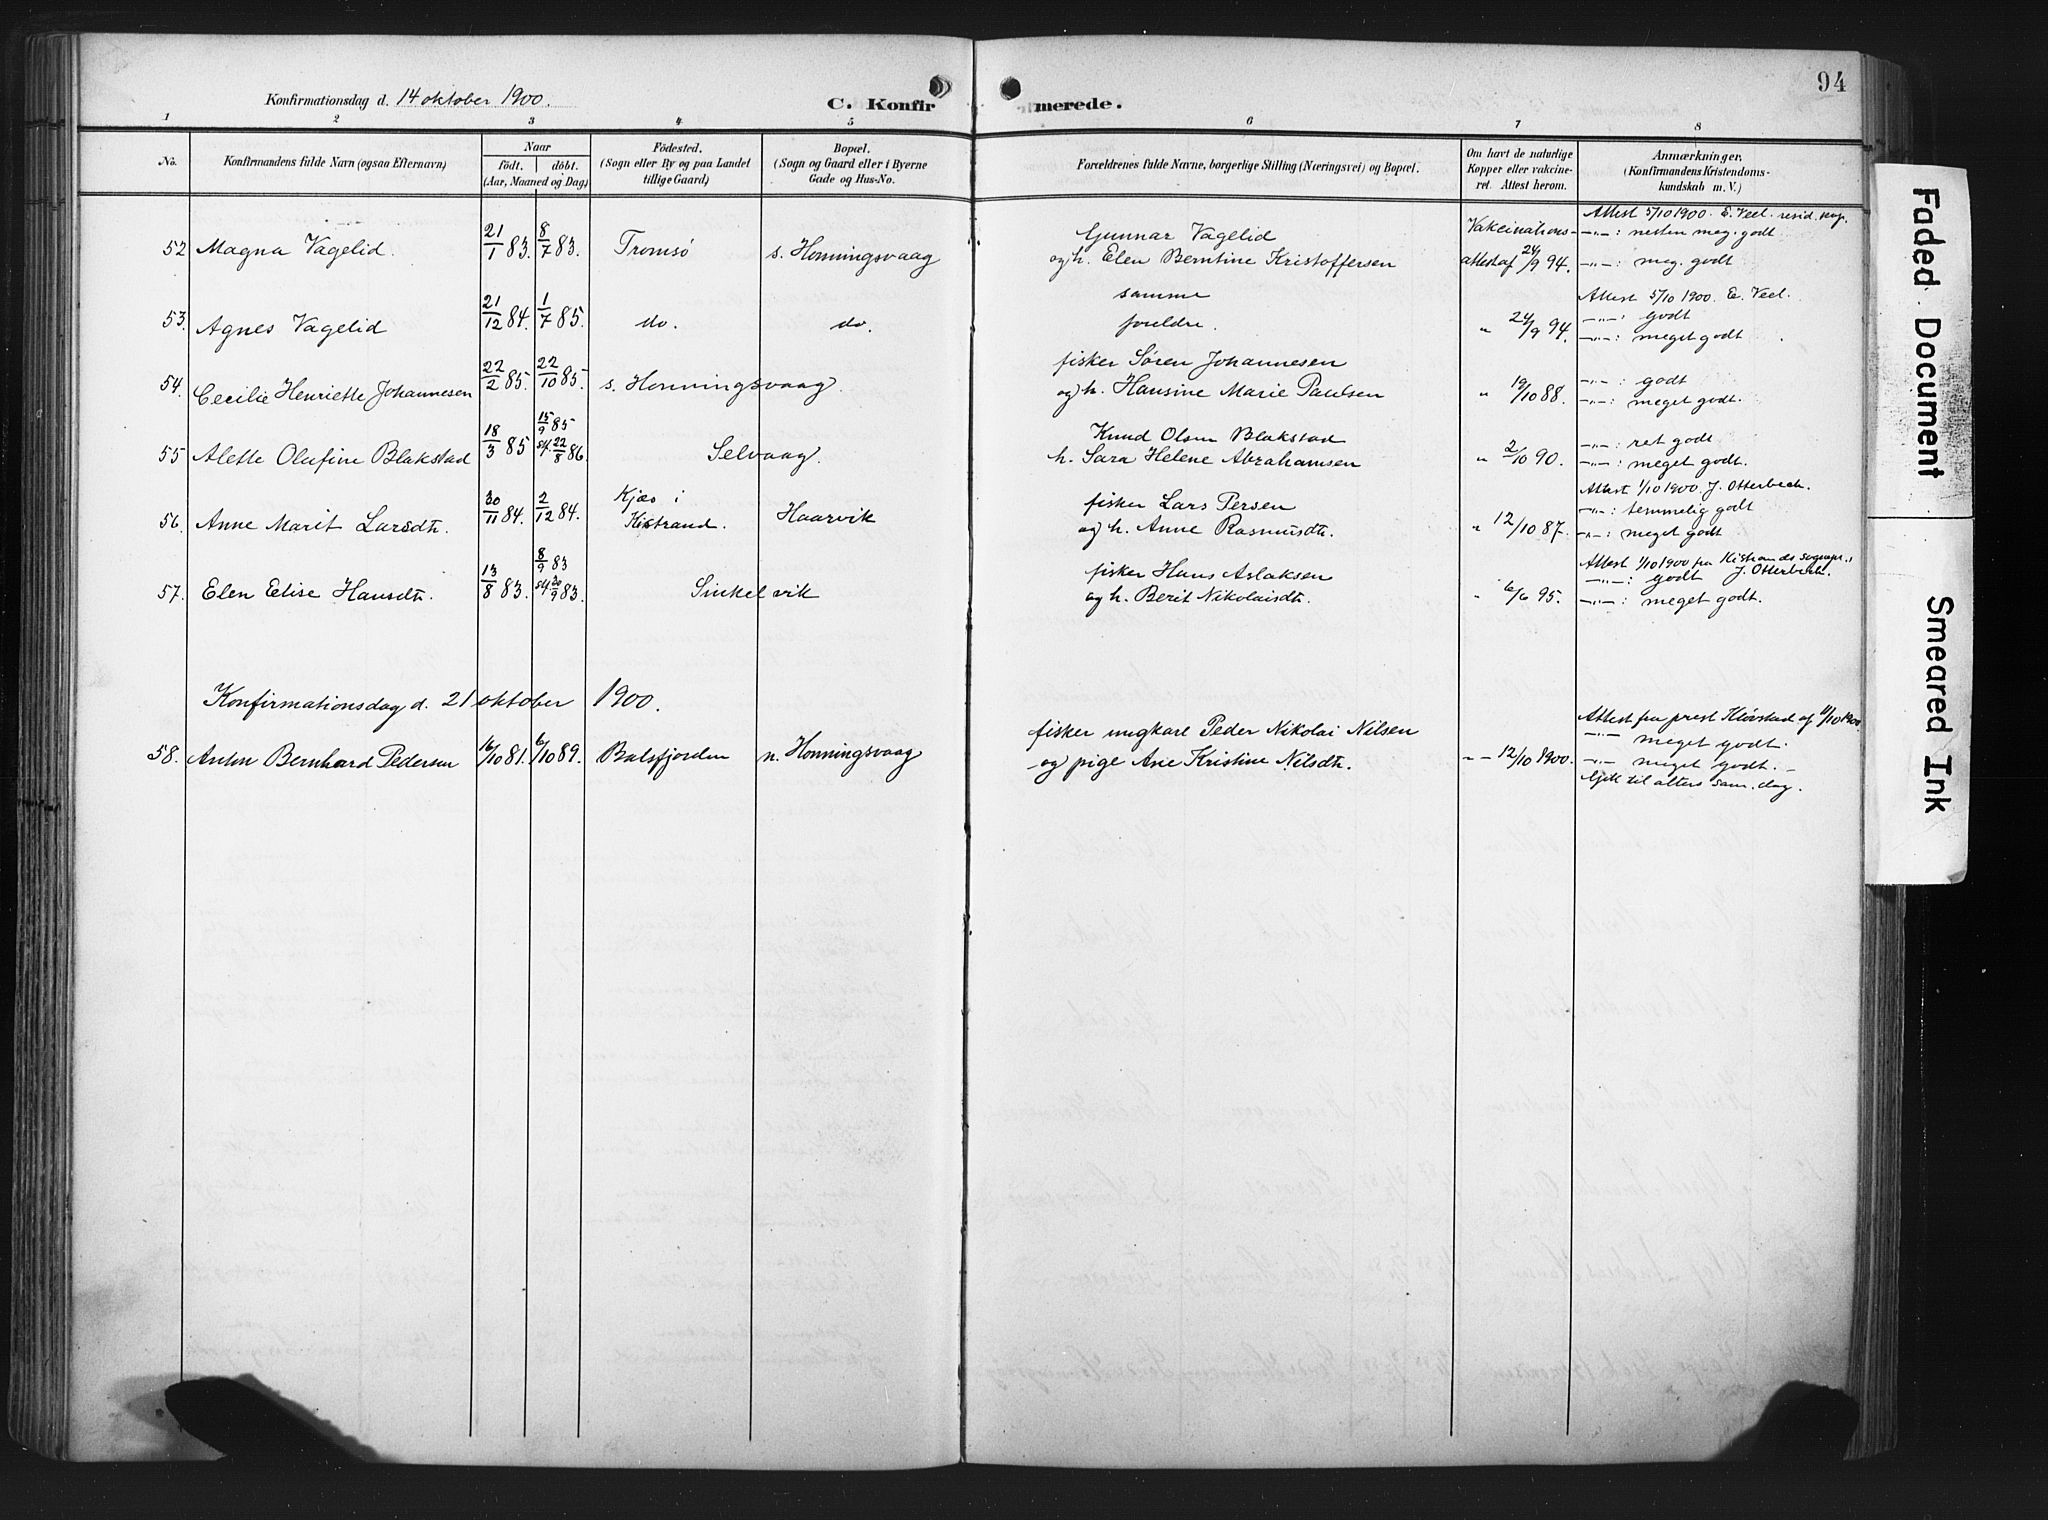 94
Konfirmationsdag d. 14 oktober 1900.
C. Konfirmerede.
1 2 3 4 5 6 7 8
No. Konfirmandens fulde Navn (ogsaa Efternavn) Naar født. døbt. (Aar, Maaned og Dag) Fødested. (Sogn eller By og paa Landet tillige Gaard) Bopæl. (Sogn og Gaard eller i Byerne Gade og Hus-No. Forældrenes fulde Navne, borgerlige Stilling (Næringsvei) og Bopæl. Om havt de naturlige Kopper eller vakcineret. Attest herom. Anmærkninger. (Konfirmandens Kristendomskundskab m. V.)
Attest 5/10 1900. E. Veel. resid. kap.
52 Magna Vagelid. 21/1 83. 8/7 83. Tromsø s. Honningsvaag Gunnar Vagelid Vakcinations- -"-: nesten meg. godt
og h. Elen Berntine Kristoffersen attest af 24/9 94. -"-: meg. godt
samme Attest 5/10 1900. E. Veel.
53. Agnes Vagelid 21/12 84. 1/7 85. do. do. foreldre. " 24/9 94. -"-: godt
-"-: meget godt
54. Cecilie Henriette Johannesen 22/2 85. 22/10 85. s. Honningsvaag. fisker Søren Johannesen -"-: godt
og h. Hansine Marie Paulsen " 19/10 88. -"-: meget godt.
55 Alette Olufine Blakstad 18/3 85 15/9 85 st. 22/8 86. Selvaag. Knud Olsen Blakstad -"-: ret godt
h. Sara Helene Abrahamsen " 2/10 90. -"-: meget godt.
Attest 1/10 1900. J. Otterbech.
56. Anne Marit Larsdt. 30/11 84. 2/12 84. Kjæs i Kistrand. Haarvik fisker Lars Persen -"-: temmelig godt
og h. Anne Rasmusdt. " 12/10 87. -"-: meget godt
Attest 1/10 1900 fra Kistrands sognepr.
57. Elen Elise Hansdt. 13/8 83. 8/9 83 st. 30/9 83. Sinkelvik fisker Hans Aslaksen -"-: godt J. Otterbech.
og h. Berit Nikolaisdt. " 6/6 95. -"-: meget godt.
Konfirmationsdag d. 21 oktober 1900.
Attest fra prest Kløvstad af 11/10 1900
58. Anton Bernhard Pedersen 16/10 81. 6/10 89. Balsfjorden n. Honningsvaag fisker ungkarl Peder Nikolai Nilsen -"- meget godt.
og pige Ane Kristine Nilsdt. " - 12/10 1900. -"- meget godt. -
Gjekk til alters sam. dag.
Faded Document
Smeared Ink